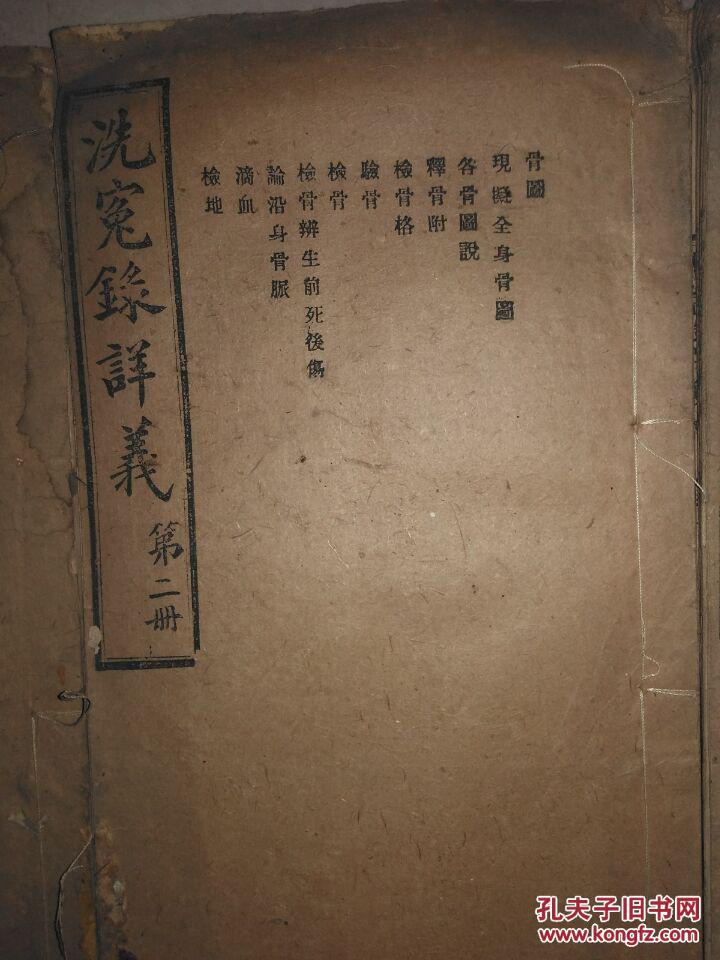 骨圖
現擬全身骨圖
各骨圖說
釋骨附
檢骨格
驗骨
檢骨
檢骨辨生前死後傷
論沿身骨脈
滴血
檢地
洗冤錄詳義
第二册
孔夫子旧书网
www.kongfz.com